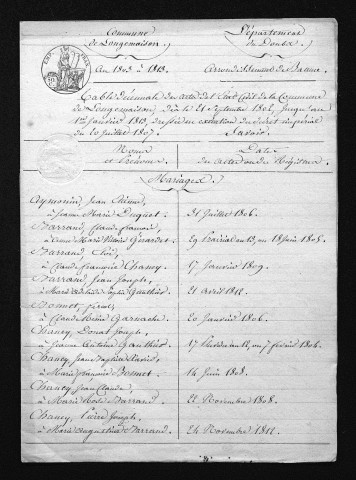 Commune
de Longemaison.
Département
du Doubs.
An 1803 à 1813.
Arrondissement de Baume
Table décennale des actes de l'Etat Civil de la Commune
de Longemaison, du 21 Septembre 1802, jusqu'au
1er Janvier 1813, dressée en exécution du décret impérial
du 20 Juillet 1807.
Savoir
Noms
et Prénoms
Dates
des actes ou du Registre
Mariages.
Aymonin, Jean Etienne,
à Jeanne Marie Duquet
31 Juillet 1806.
Barrand, Claude François,
à Anne Marie Victoire Girardet
29 Prairial an 13, ou 18 Juin 1805.
Barrand, Eloi,
à Claude Françoise Chaney
17 Janvier 1809.
Barrand, Jean Joseph,
à Marie Sophie Gauthier
21 Avril 1812.
Bonnet,
à Claude Garnache
20 Janvier 1806.
Chaney, Donat Joseph,
à Jeanne Antoine Gauthier
17 Pluviose an 12, ou 7 février 1804.
Chaney, Jean Baptiste Xavier,
à Marie Françoise Bonnet
14 Juin 1808.
Chaney, Jean Claude,
à Marie Rose Barrand
21 Novembre 1808.
Chaney, Pierre Joseph,
à Marie Augustine Barrand
24 Novembre 1812.